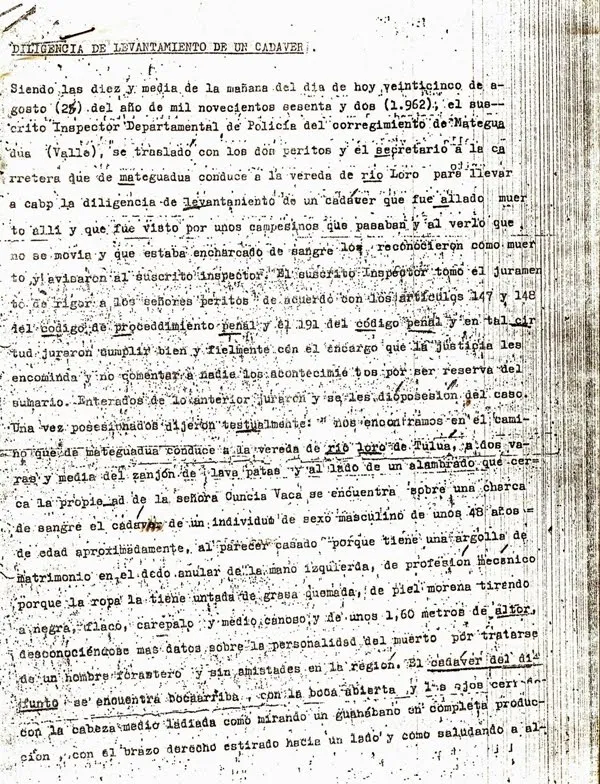 DILIGENCIA DE LEVANTAMIENTO DE UN CADAVER.
Siendo las diez y media de la mañana del dia de hoy veinticinco de a-
gosto (25) del año de mil novecientos sesenta y dos (1.962), el sus--
crito Inspector Departamental de Policía del corregimiento de Mategua
dua (Valle), se traslado con los don peritos y el secretario a la ca
rretera que de mateguadua conduce a la vereda de río Loro para llevar
a cabp la diligencia de levantaniento de un cadáver que fue allado muer
to alli y que fue visto por unos campesinos que pasaban y al verlo que
no se movia y que estaba encharcado de sangre los reconocieron como muer
to y avisaron al suscrito inspector. El suscrito Inspector tomó el juramen
to de rigor a los señores peritos de acuerdo con los artículos 147 y 148
del codigo de proceddimiento penal y el 191 del código penal y en tal cir
tud juraron cumplir bien y fielmente con el encargo que la justicia les
encominda y no comentar a nadie los acontecimie tos por ser reserva del
sumario. Enterados de lo anterior juraron y se les dioposesion del caso.
Una vez posesionados dijeron testualmente: " nos encontramos en el cami-
no que de mateguadua conduce a la vereda de río loro de Tulua, a dos va-
ras y media del zanjón de lava patas y al lado de un alambrado que cer-
ca la propie ad de la señora Cuncia Vaca se encuentra sobre una charca
de sangre el cadáver de un individuo de sexo masculino de unos 48 años =
de edad aproximadamente, al parecer casado porque tiene una argolla de
matrimonio en el dedo anular de la mano izquierda, de profesión mecánico
porque la ropa la tiene untada de grasa quemada, de piel morena tirando
a negra, flaco, carepalo y medio canoso y de unos 1,60 metros de altor,
desconociéndose mas datos sobre la personalidad del muerto por tratarse
de un hombre forastero y sin amistades en la región. El cadaver del di-
funto se encuentra bocaarriba, con la boca abierta y l s ojos cerr-
con la cabeza medio ladiada como mirando un guanábano en completa produc-
cion, con el brazo derecho estirado hacia un lado y como saludando a al-